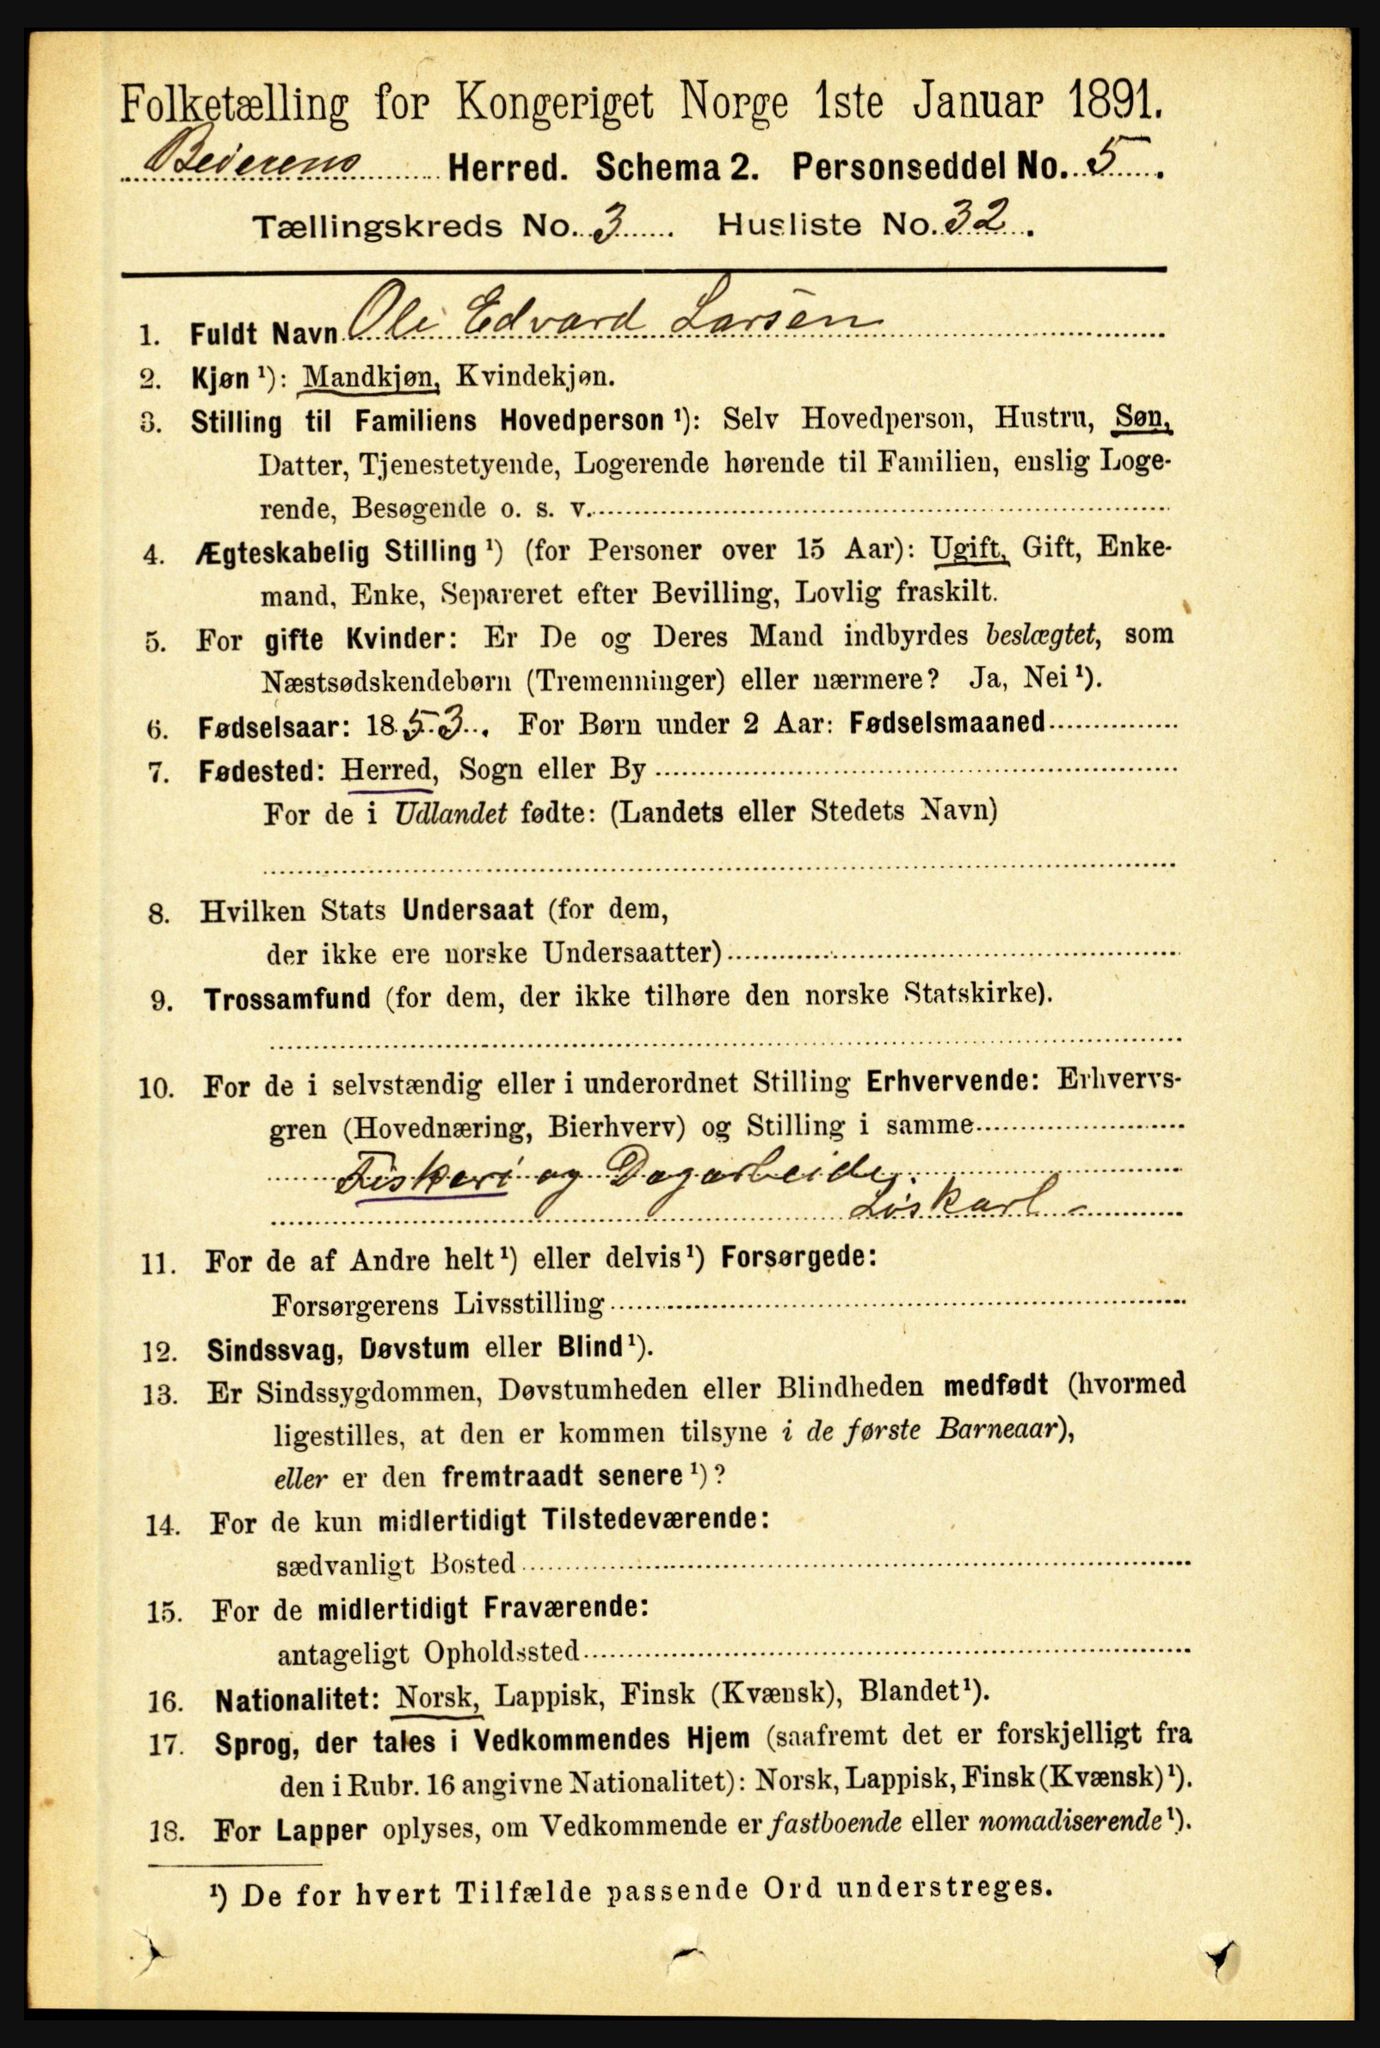 Folketælling for Kongeriget Norge 1ste Januar 1891.
Beierens Herred. Schema 2. Personseddel No. 5.
Tællingskreds No. 3. Husliste No. 32.
1. Fuldt Navn Ole Edvard Larsen
2. Kjøn ¹): Mandkjøn, Kvindekjøn.
3. Stilling til Familiens Hovedperson ¹): Selv Hovedperson, Hustru, Søn,
Datter, Tjenestetyende, Logerende hørende til Familien, enslig Loge-
rende, Besøgende o. s. v.
4. Ægteskabelig Stilling ¹) (for Personer over 15 Aar): Ugift, Gift, Enke-
mand, Enke, Separeret efter Bevilling, Lovlig fraskilt.
5. For gifte Kvinder: Er De og Deres Mand indbyrdes beslægtet, som
Næstsødskendebørn (Tremenninger) eller nærmere? Ja, Nei ¹).
6. Fødselsaar: 1853. For Børn under 2 Aar: Fødselsmaaned
7. Fødested: Herred, Sogn eller By
For de i Udlandet fødte: (Landets eller Stedets Navn)
8. Hvilken Stats Undersaat (for dem,
der ikke ere norske Undersaatter)
9. Trossamfund (for dem, der ikke tilhøre den norske Statskirke).
10. For de i selvstændig eller i underordnet Stilling Erhvervende: Erhvervs-
gren (Hovednæring, Bierhverv) og Stilling i samme
Fiskeri og Dagarbeide.
Løskarl
11. For de af Andre helt ¹) eller delvis ¹) Forsørgede:
Forsørgerens Livsstilling
12. Sindssvag, Døvstum eller Blind ¹).
13. Er Sindssygdommen, Døvstumheden eller Blindheden medfødt (hvormed
ligestilles, at den er kommen tilsyne i de første Barneaar),
eller er den fremtraadt senere ¹)?
14. For de kun midlertidigt Tilstedeværende:
sædvanligt Bosted
15. For de midlertidigt Fraværende:
antageligt Opholdssted
16. Nationalitet: Norsk, Lappisk, Finsk (Kvænsk), Blandet ¹).
17. Sprog, der tales i Vedkommendes Hjem (saafremt det er forskjelligt fra
den i Rubr. 16 angivne Nationalitet): Norsk, Lappisk, Finsk (Kvænsk) ¹).
18. For Lapper oplyses, om Vedkommende er fastboende eller nomadiserende ¹).
¹) De for hvert Tilfælde passende Ord understreges.